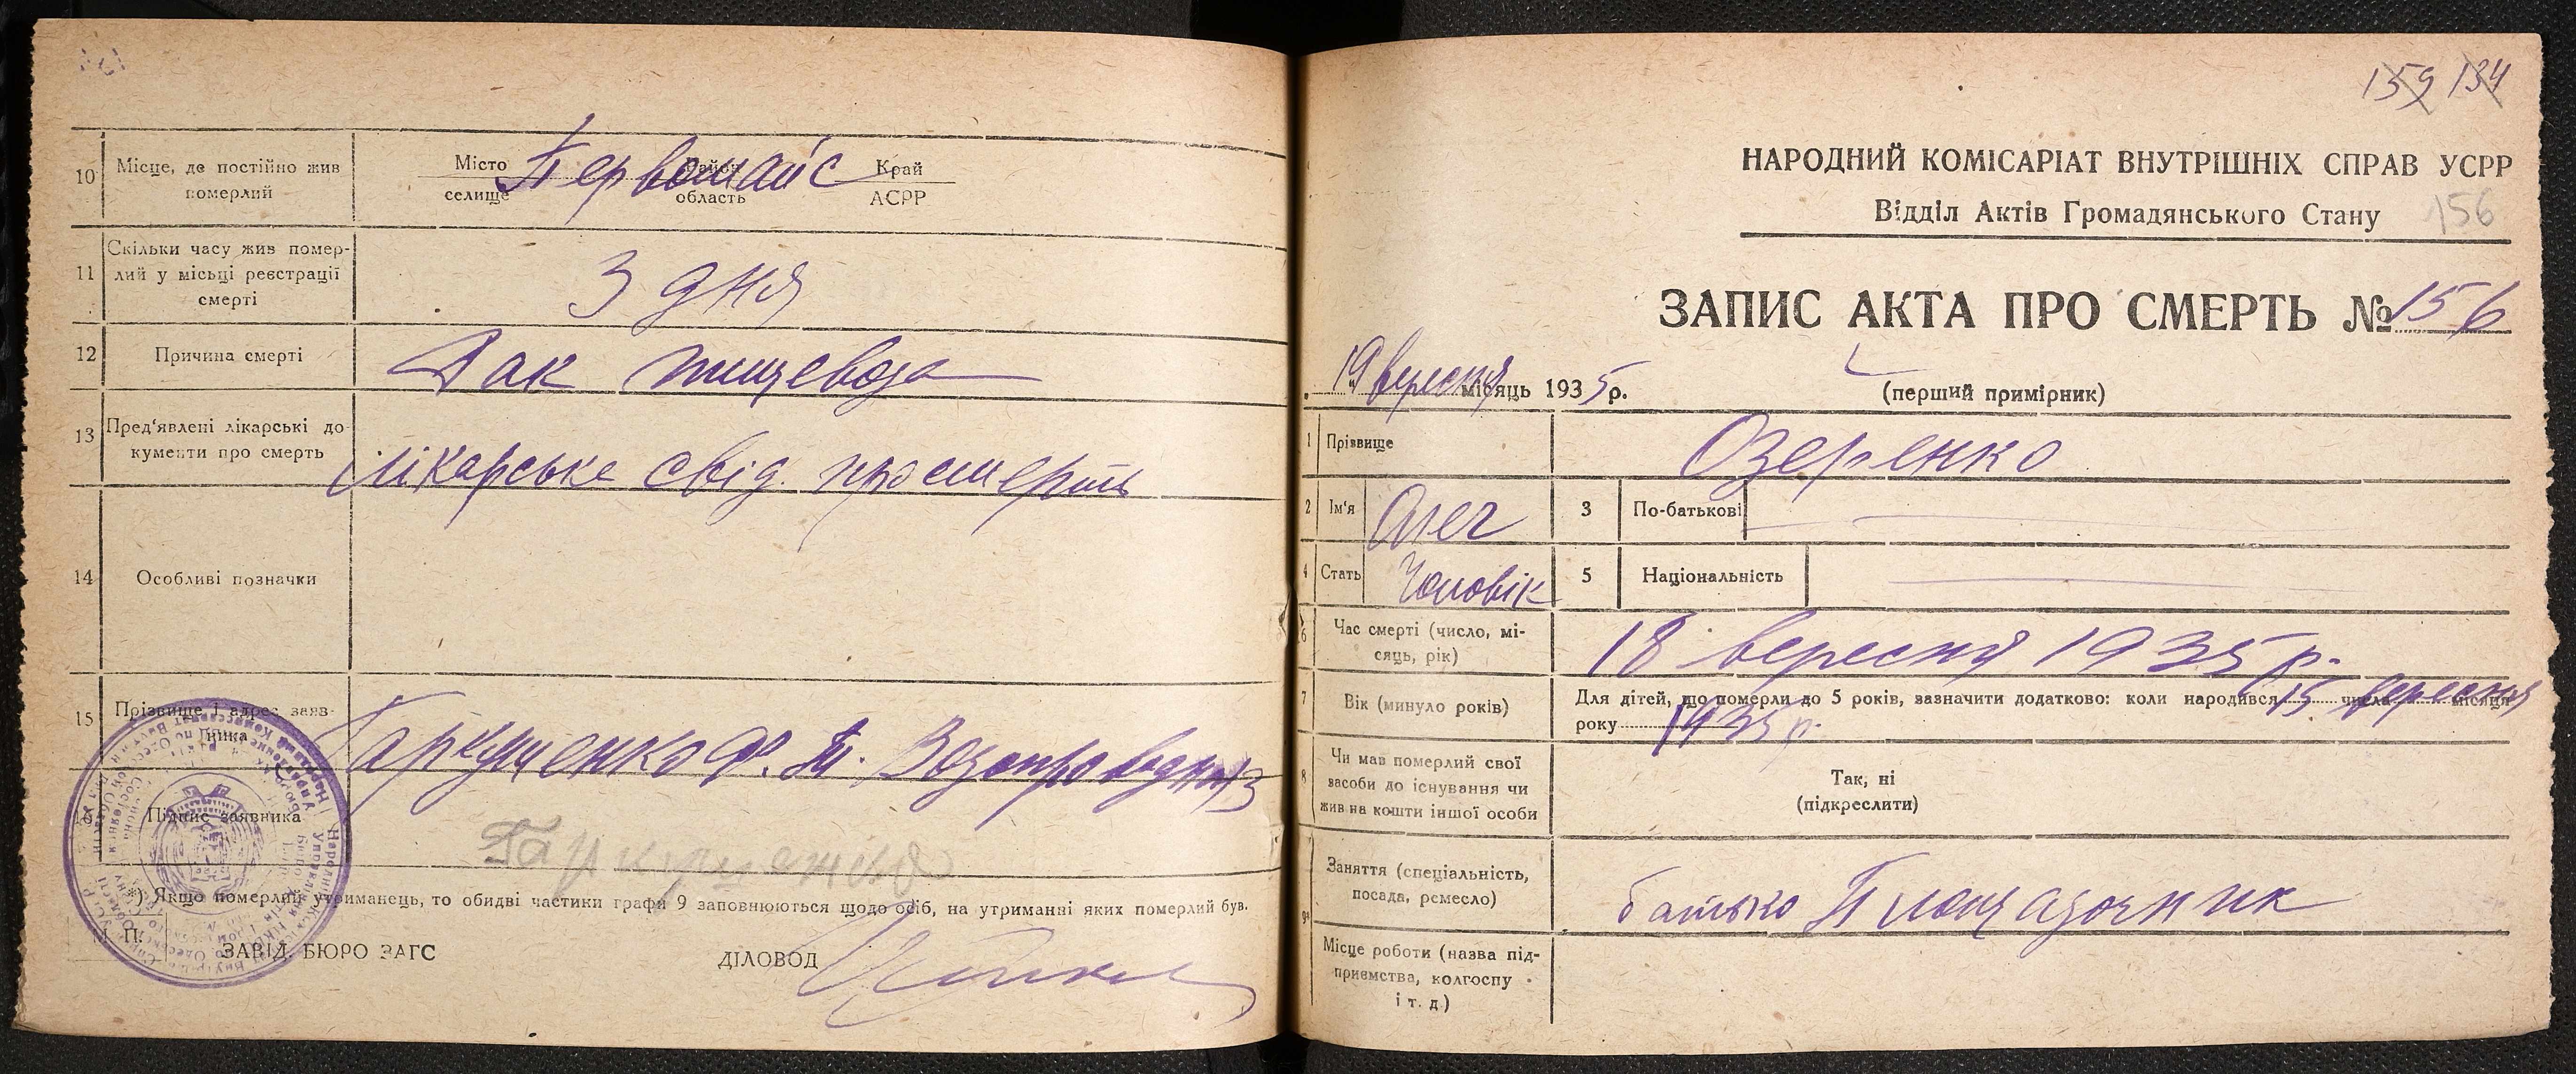 10 Місце, де постійно жив померлий
Місто
селище
Район
область
Край
АСРР
Первомайс
11 Скільки часу жив помер-
лий у місьці реєстрації
смерті
3 дня
12 Причина смерті
Рак пищевода
13 Пред'явлені лікарські до-
кументи про смерть
лікарське свід. про смерть
14 Особливі позначки
15 Прізвище і адрес заяв-
ника
Гаркушенко Ф. П. Водопроводн 13
16 Підпис заявника
*) Якщо померлий утриманець, то обидві частики графи 9 заповнюються щодо осіб, на утриманні яких померлий був.
М. П.
ЗАВІД. БЮРО ЗАГС
ДІЛОВОД
159 134
НАРОДНИЙ КОМІСАРІАТ ВНУТРІШНІХ СПРАВ УСРР
Відділ Актів Громадянського Стану 156
ЗАПИС АКТА ПРО СМЕРТЬ № 156
19 вересня місяць 1935 р. (перший примірник)
1 Прізвище Озеренко
2 Ім'я Олег 3 По-батькові
4 Стать Чоловік 5 Національність
6 Час смерті (число, мі-
сяць, рік)
18 вересня 1935 р.
7 Вік (минуло років)
Для дітей, що померли до 5 років, зазначити додатково: коли народився 15 числа вересня місяця
року 1935 р.
8 Чи мав померлий свої
засоби до існування чи
жив на кошти іншої особи
Так, ні
(підкреслити)
9*
Заняття (спеціальність,
посада, ремесло)
батько Площадочник
Місце роботи (назва під-
приємства, колгоспу
і т. д.)